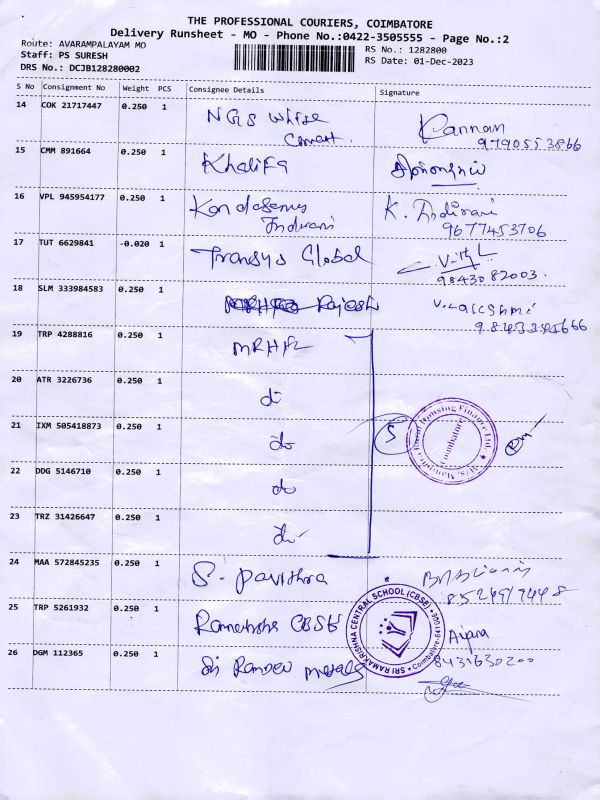 THE PROFESSIONAL COURIERS, COIMBATORE
Delivery Runsheet - MO - Phone No.:0422-3505555 - Page No.:2
Route: AVARAMPALAYAM MO
RS No.: 1282800
Staff: PS SURESH
RS Date: 01-Dec-2023
DRS No.: DCJB128280002
S No Consignment No Weight PCS Consignee Details Signature
14 COK 21717447 0.250 1 NGS White Kannan
9790553866
15 CMM 891664 0.250 1 Khalifa
16 VPL 945954177 0.250 1 K. Indirani
Indirani 9677453706
17 TUT 6629841 -0.020 1 Transys Global
9843082003.
18 SLM 333984583 0.250 1 Rajesh
19 TRP 4288816 0.250 1 MRHFL
20 ATR 3226736 0.250 1 do
21 IXM 505418873 0.250 1 do 5
Rural Housing Finance Ltd.
Coimbatore
22 DDG 5146710 0.250 1 do
23 TRZ 31426647 0.250 1 do
24 MAA 572845235 0.250 1 S. Pavithra
25 TRP 5261932 0.250 1 CBSE
SRI RAMAKRISHNA CENTRAL SCHOOL (CBSE)
26 DGM 112365 0.250 1 Sri metals 8431630200